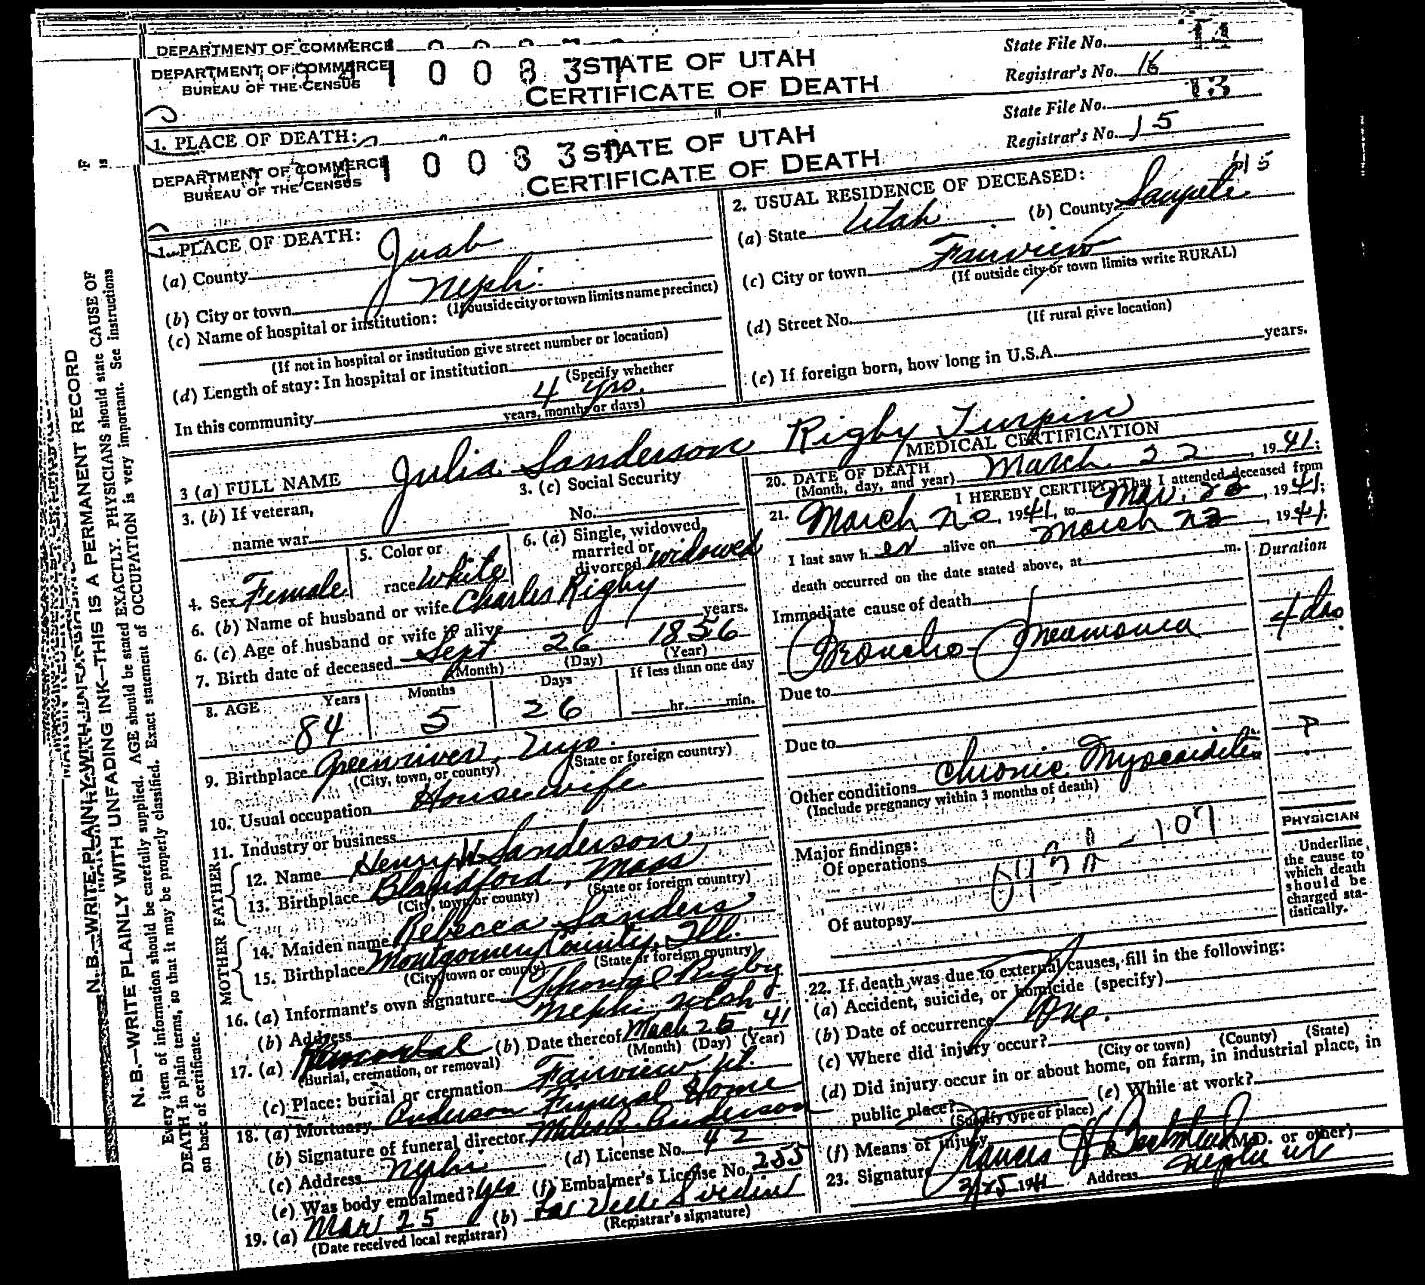 DEPARTMENT OF COMMERCE
DEPARTMENT OF COMMERCE STATE OF UTAH State File No.
BUREAU OF THE CENSUS CERTIFICATE OF DEATH Registrar's No. 16
1. PLACE OF DEATH: State File No. 13
DEPARTMENT OF COMMERCE STATE OF UTAH Registrar's No. 15
BUREAU OF THE CENSUS CERTIFICATE OF DEATH
1. PLACE OF DEATH:
(a) County Juab
(b) City or town Nephi
(If outside city or town limits name precinct)
(c) Name of hospital or institution:
(If not in hospital or institution give street number or location)
(d) Length of stay: In hospital or institution
(Specify whether
In this community 4 yrs.
years, months or days)
2. USUAL RESIDENCE OF DECEASED:
(a) State Utah (b) County Sanpete
(c) City or town Fairview
(If outside city or town limits write RURAL)
(d) Street No.
(If rural give location)
(e) If foreign born, how long in U.S.A. years.
3 (a) FULL NAME Julia Sanderson Rigby Turpin
3. (b) If veteran,
name war
3. (c) Social Security
No.
4. Sex Female
5. Color or
race White
6. (a) Single, widowed,
married or
divorced widowed
6. (b) Name of husband or wife Charles Rigby
6. (c) Age of husband or wife if alive years.
7. Birth date of deceased Sept 26 1856
(Month) (Day) (Year)
8. AGE Years Months Days If less than one day
84 5 26 hr. min.
9. Birthplace Greenriver, Wyo.
(City, town, or county) (State or foreign country)
10. Usual occupation Housewife
11. Industry or business
FATHER
12. Name Henry W. Sanderson
13. Birthplace Blandford, Mass
(City, town or county) (State or foreign country)
MOTHER
14. Maiden name Rebecca Sanders
15. Birthplace Montgomery County, Ill.
(City, town or county) (State or foreign country)
16. (a) Informant's own signature Rigby
(b) Address Nephi Utah
17. (a) (b) Date thereof March 25 41
(Burial, cremation, or removal) (Month) (Day) (Year)
(c) Place: burial or cremation Fairview, Ut.
18. (a) Mortuary Anderson Funeral Home
(b) Signature of funeral director Anderson
(c) Address Nephi (d) License No. 42
(e) Was body embalmed? Yes (f) Embalmer's License No. 255
19. (a) Mar 25 (b)
(Date received local registrar) (Registrar's signature)
MEDICAL CERTIFICATION
20. DATE OF DEATH March 22, 1941;
(Month, day, and year)
I HEREBY CERTIFY, That I attended deceased from
21. March 20, 1941, to Mar. 22, 1941;
I last saw h er alive on March 22, 1941;
death occurred on the date stated above, at m.
Duration
Immediate cause of death
Broncho-Pneumonia 4 das.
Due to
Due to ?
Other conditions Chronic Myocarditis
(Include pregnancy within 3 months of death)
Major findings:
Of operations
107
Of autopsy
PHYSICIAN
Underline
the cause to
which death
should be
charged sta-
tistically.
22. If death was due to external causes, fill in the following:
(a) Accident, suicide, or homicide (specify)
(b) Date of occurrence
(c) Where did injury occur?
(City or town) (County) (State)
(d) Did injury occur in or about home, on farm, in industrial place, in
public place? (e) While at work?
(Specify type of place)
(f) Means of injury
23. Signature (M.D. or other)
3/25 1941 Address Nephi Ut
N. B.—WRITE PLAINLY WITH UNFADING INK—THIS IS A PERMANENT RECORD
Every item of information should be carefully supplied. AGE should be stated EXACTLY. PHYSICIANS should state CAUSE OF
DEATH in plain terms, so that it may be properly classified. Exact statement of OCCUPATION is very important. See instructions
on back of certificate.